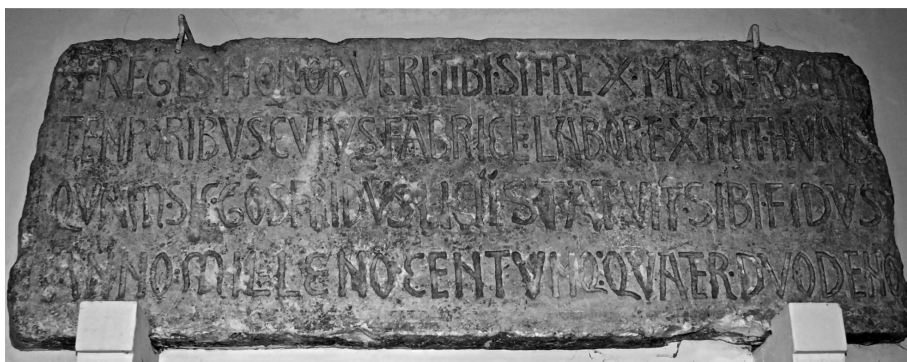 + REGIS HONOR VERI TIBI SIT REX MAGN ROGERI
TEMPORIBVS CVIVS FABRICE LABOR EXTITIT HVIVS
QVAM SIC GOSFRIDVS STATVIT SIBI FIDVS
ANNO MILLENO CENTVNO QVATER DVODENO